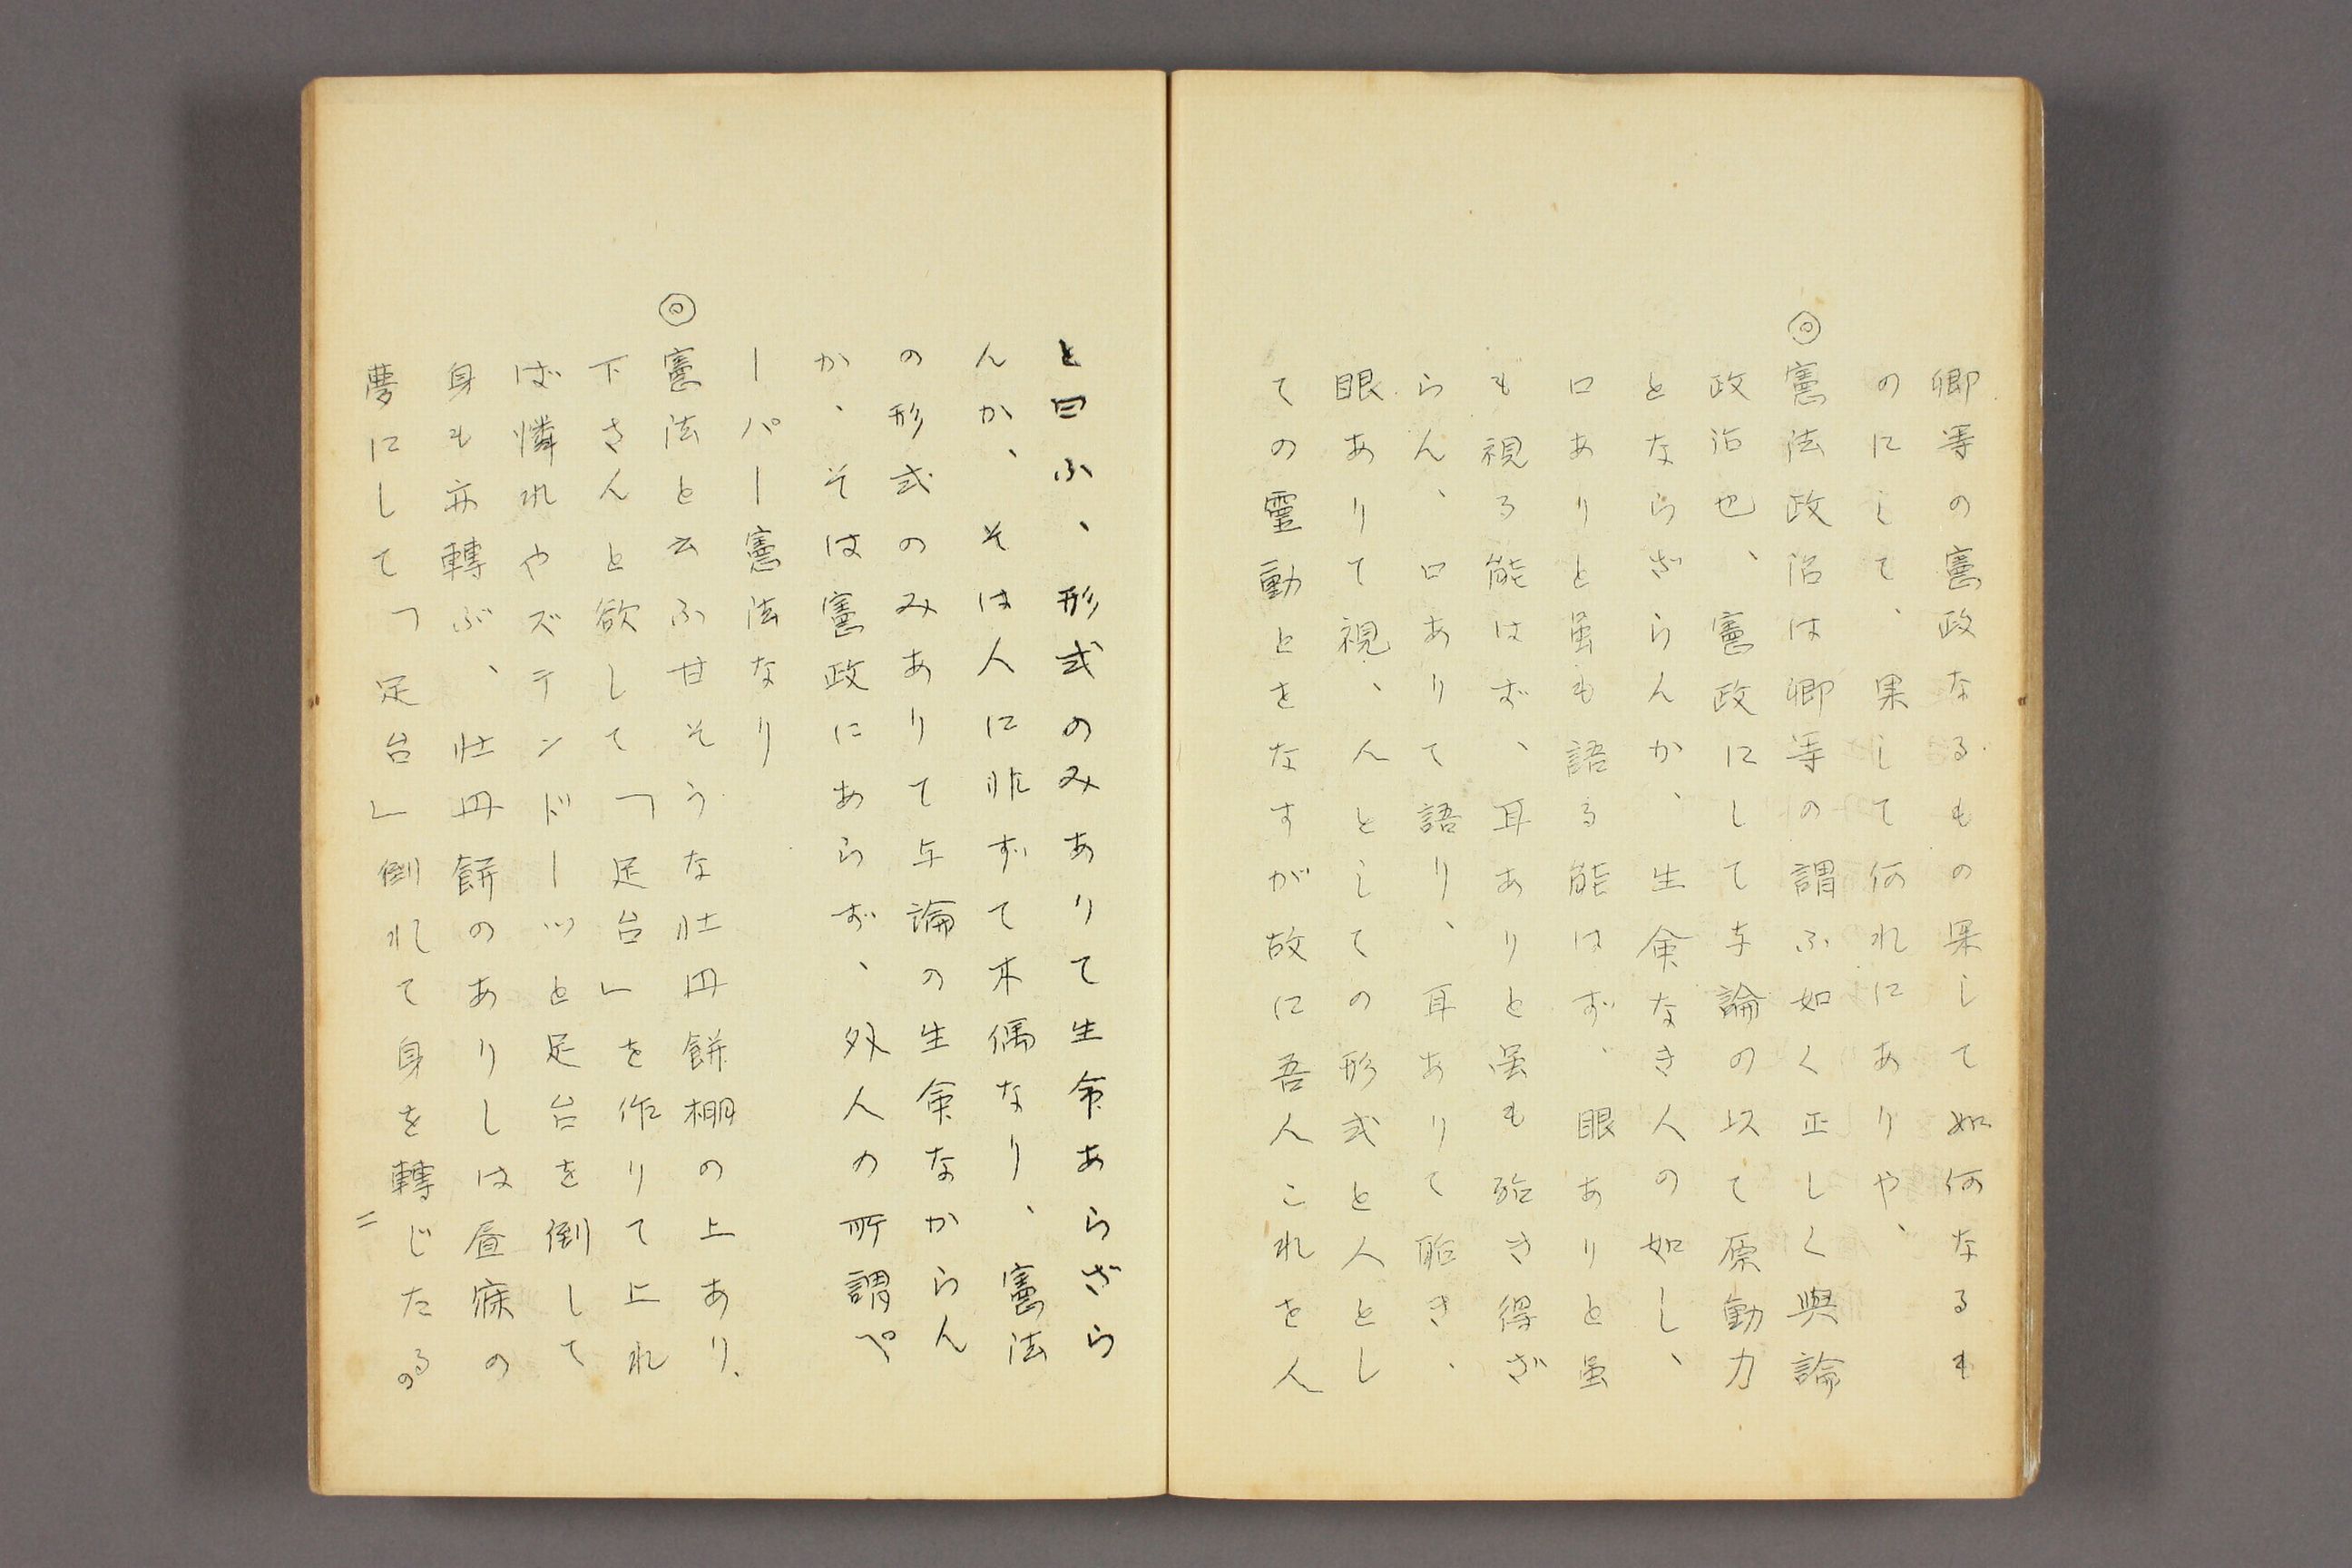 卿等の憲政なるもの果して如何なるも
のにして、果して何れにありや、
◎憲法政治は卿等の謂ふ如く正しく與論
政治也、憲政にして与論の以て原動力
とならざらんか、生命なき人の如し、
口ありと虽も語る能はず、眼ありと虽
も視る能はず、耳ありと虽も聆き得ざ
らん、口ありて語り、耳ありて聆き、
眼ありて視、人としての形式と人とし
ての霊動とをなすが故に吾人これを人
と曰ふ、形式のみありて生命あらざら
んか、そは人に非ずて木偶なり、憲法
の形式のみありて与論の生命なからん
か、そは憲政にあらず、外人の所謂ペ
ーパー憲法なり
◎憲法と云ふ甘そうな牡丹餅棚の上あり、
下さんと欲して「足台」を作りて上れ
ば憐れやズテンドーッと足台を倒して
身も亦轉ぶ、牡丹餅のありしは昼寐の
夢にして「足台」倒れて身を轉じたるの